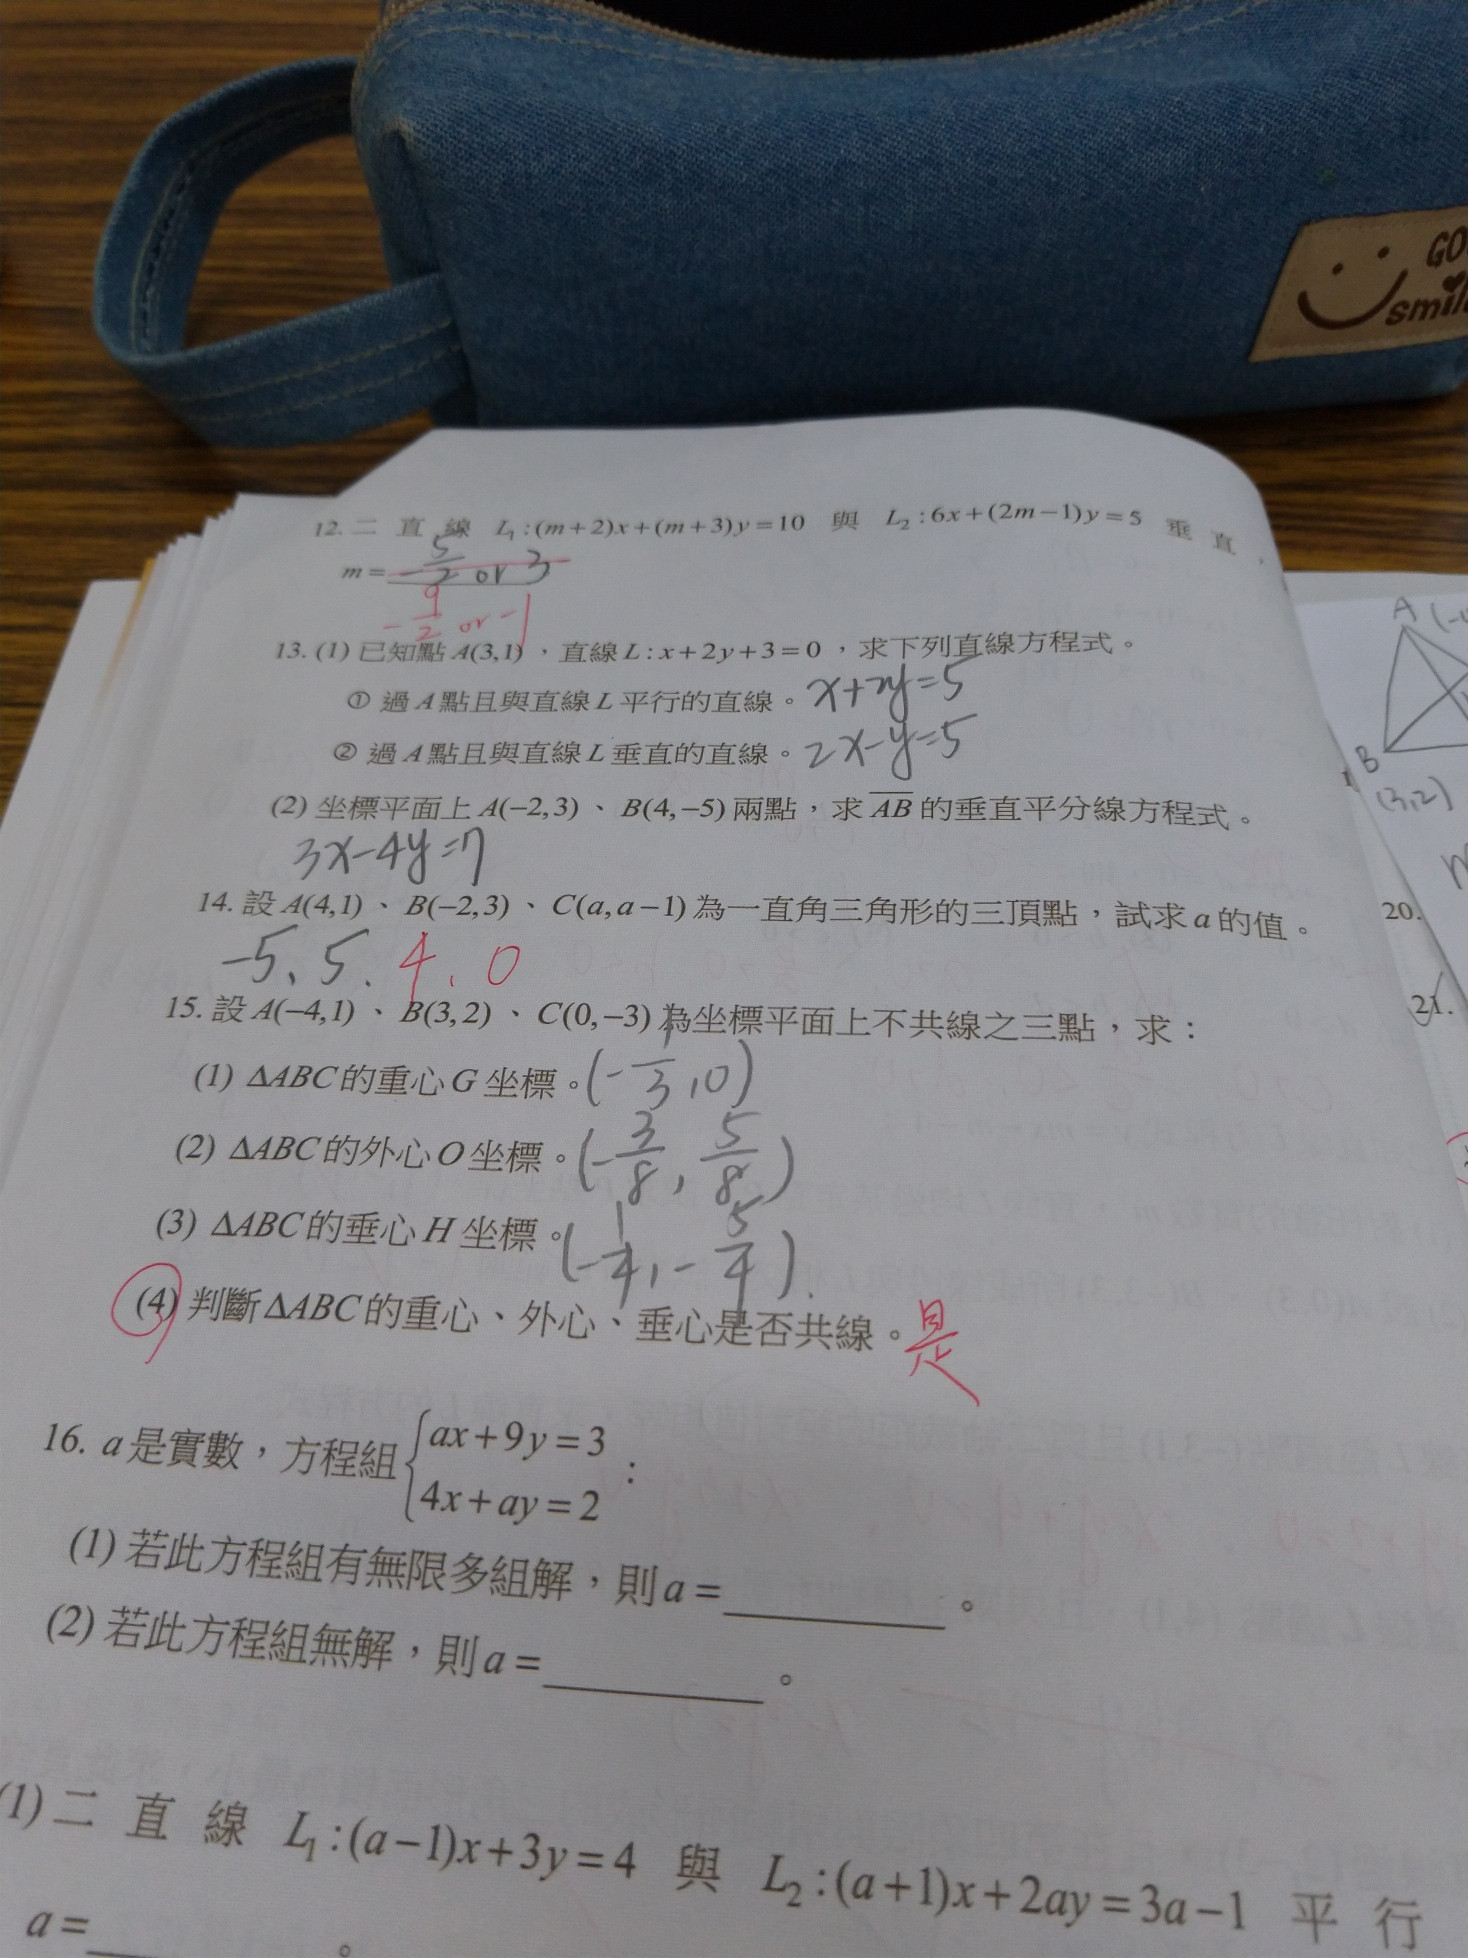 GO
smil
12. 二直線 L₁:(m+2)x+(m+3)y=10 與 L₂:6x+(2m−1)y=5 垂直，
m= −5/2 or 3
−9/2 or −1
13. (1) 已知點 A(3,1)，直線 L:x+2y+3=0，求下列直線方程式。
① 過 A 點且與直線 L 平行的直線。 x+2y=5
② 過 A 點且與直線 L 垂直的直線。 2x−y=5
(2) 坐標平面上 A(−2,3)、B(4,−5) 兩點，求 AB 的垂直平分線方程式。
3x−4y=7
14. 設 A(4,1)、B(−2,3)、C(a,a−1) 為一直角三角形的三頂點，試求 a 的值。
−5、5、4、0
15. 設 A(−4,1)、B(3,2)、C(0,−3) 為坐標平面上不共線之三點，求：
(1) ΔABC 的重心 G 坐標。(−1/3,0)
(2) ΔABC 的外心 O 坐標。(−3/8, 5/8)
(3) ΔABC 的垂心 H 坐標。(−1/4,−5/4)
(4) 判斷 ΔABC 的重心、外心、垂心是否共線。是
16. a 是實數，方程組 { ax+9y=3
4x+ay=2 ：
(1) 若此方程組有無限多組解，則 a=________。
(2) 若此方程組無解，則 a=________。
(1) 二直線 L₁:(a−1)x+3y=4 與 L₂:(a+1)x+2ay=3a−1 平行
a=________。
A
B
(3,2)
20.
21.